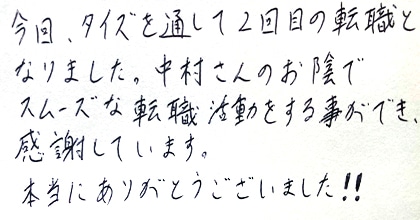 今回、タイズを通して2回目の転職と
なりました。中村さんのお陰で
スムーズな転職活動をする事ができ、
感謝しています。
本当にありがとうございました!!